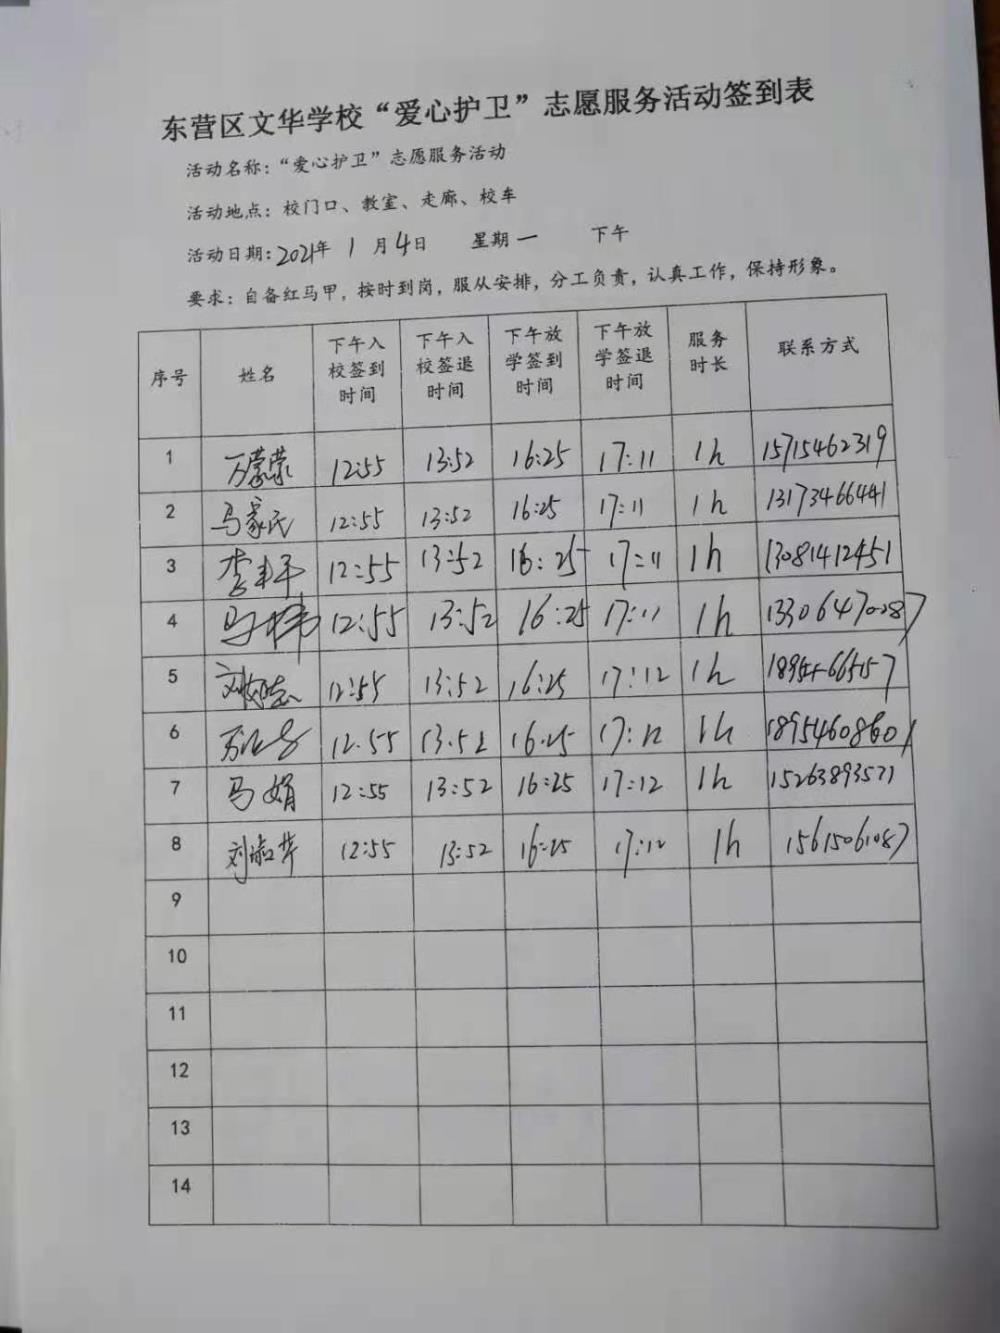 东营区文华学校“爱心护卫”志愿服务活动签到表
活动名称：“爱心护卫”志愿服务活动
活动地点：校门口、教室、走廊、校车
活动日期：2021年 1 月 4日 星期一 下午
要求：自备红马甲，按时到岗，服从安排，分工负责，认真工作，保持形象。
序号 姓名 下午入校签到时间 下午入校签退时间 下午放学签到时间 下午放学签退时间 服务时长 联系方式
1 万蒙蒙 12:55 13:52 16:25 17:11 1h 15715462319
2 马家民 12:55 13:52 16:25 17:11 1h 13173466441
3 李 12:55 13:52 16:25 17:11 1h 13081412451
4 马 12:55 13:52 16:25 17:11 1h 13306470087
5 刘 12:55 13:52 16:25 17:12 1h
6 12.55 13.52 16.25 17:12 1h 18954608601
7 马娟 12:55 13:52 16:25 17:12 1h 15263893571
8 刘 12:55 13:52 16:25 17:12 1h 15615061087
9
10
11
12
13
14